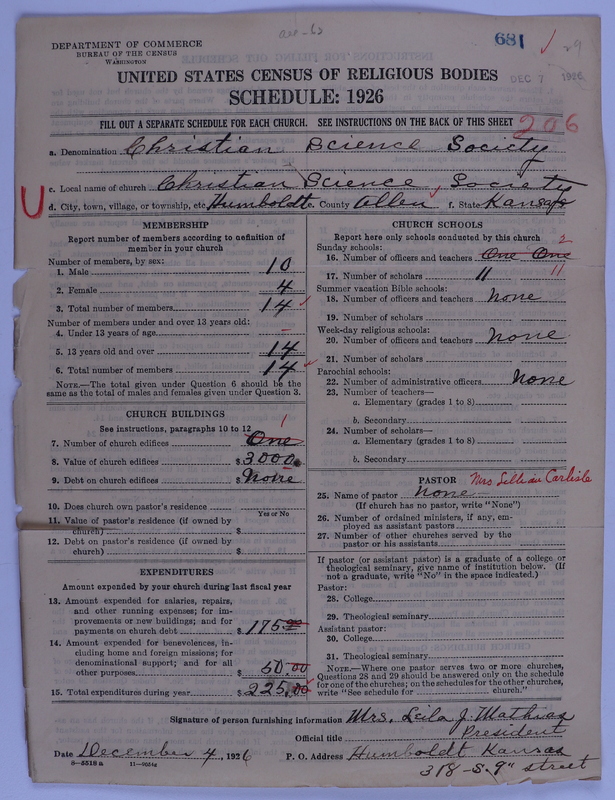 681
29
DEPARTMENT OF COMMERCE
BUREAU OF THE CENSUS
WASHINGTON
DEC 7 1926
UNITED STATES CENSUS OF RELIGIOUS BODIES
SCHEDULE: 1926
FILL OUT A SEPARATE SCHEDULE FOR EACH CHURCH. SEE INSTRUCTIONS ON THE BACK OF THIS SHEET
206
a. Denomination Christian Science Society
c. Local name of church Christian Science Society
U
d. City, town, village, or township, etc. Humboldt e. County Allen f. State Kansas
MEMBERSHIP
Report number of members according to definition of
member in your church
Number of members, by sex:
1. Male 10
2. Female 4
3. Total number of members 14
Number of members under and over 13 years old:
4. Under 13 years of age –
5. 13 years old and over 14
6. Total number of members 14
NOTE.—The total given under Question 6 should be the
same as the total of males and females given under Question 3.
CHURCH BUILDINGS
See instructions, paragraphs 10 to 12
1
7. Number of church edifices One
8. Value of church edifices $ 3000
9. Debt on church edifices $ None
10. Does church own pastor's residence
Yes or No
11. Value of pastor's residence (if owned by
church) $
12. Debt on pastor's residence (if owned by
church) $
EXPENDITURES
Amount expended by your church during last fiscal year
13. Amount expended for salaries, repairs,
and other running expenses; for im-
provements or new buildings; and for
payments on church debt $ 175.00
14. Amount expended for benevolences, in-
cluding home and foreign missions; for
denominational support; and for all
other purposes $ 50.00
15. Total expenditures during year $ 225.00
CHURCH SCHOOLS
Report here only schools conducted by this church
Sunday schools: 2
16. Number of officers and teachers One One
17. Number of scholars 11 11
Summer vacation Bible schools:
18. Number of officers and teachers None
19. Number of scholars
Week-day religious schools:
20. Number of officers and teachers None
21. Number of scholars
Parochial schools:
22. Number of administrative officers None
23. Number of teachers—
a. Elementary (grades 1 to 8)
b. Secondary
24. Number of scholars—
a. Elementary (grades 1 to 8)
b. Secondary
PASTOR Mrs Lillian Carlisle
25. Name of pastor None
(If church has no pastor, write "None")
26. Number of ordained ministers, if any, em-
ployed as assistant pastors
27. Number of other churches served by the
pastor or his assistants
If pastor (or assistant pastor) is a graduate of a college or
theological seminary, give name of institution below. (If
not a graduate, write "No" in the space indicated.)
Pastor:
28. College
29. Theological seminary
Assistant pastor:
30. College
31. Theological seminary
NOTE.—Where one pastor serves two or more churches,
Questions 28 and 29 should be answered only on the schedule
for one of the churches; on the schedules for the other churches,
write "See schedule for church."
Signature of person furnishing information Mrs. Leila J. Mathias
Official title President
Date December 4, 1926 P. O. Address Humboldt Kansas
8—5518 a 11—9054a
318 - S. 9" street